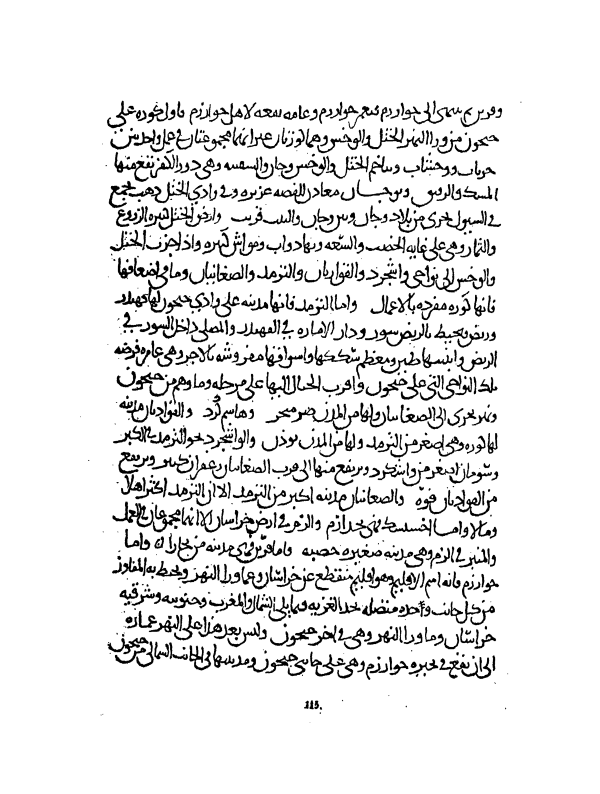 الى خوارزم فيعبر خوارزم وعامة نفعه لاهل خوارزم فاول كوره على
جيحون من ورا النهر الختل والوخش وهما كورتان غير انهما مجموعتان في عمل واحد بين
جرياب ووخشاب ويتاخم الختل والوخش وخان والسقينه وهي دور الكفر تقع منها
المسك والرقيق وبوخان معادن للفضه غزيره وفي وادي الختل ذهب يجمع
في السيول يجرى من بلاد وخان وبين وخان والتبت قريب وارض الختل كثيره الزروع
والثمار وهي على غايه الخصب والسعه وبها دواب ومواش كثيره واذا جزت الختل
والوخش الى نواحي واشجرد والقواديان والترمذ والصغانيان وما في اضعافها
فانها كوره مفرده بالاعمال واما الترمذ فانها مدينه على وادي جيحون لها قهندز
وربض يحيط بالربض سور ودار الاماره في القهندز والمصلى داخل السور في
الربض وابنيتها طين ومعظم سككها واسواقها مفروشه بالاجر وهي عامره فرضه
تلك النواحي التي على جيحون واقرب الجبال اليها على مرحله وماوهم من جيحون
ونهر يجرى الى الصغانيان ولها من المدن صرمنجن وهاشم كرد والقواديان مدينه
لها كوره وهي اصغر من الترمذ ولها من المدن نودز والواشجرد نحو الترمذ في الكبر
وشومان اصغر من واشجرد ويرتفع منها الى قرب الصغانيان زعفران كثير ويرتفع
من القواديان فوّه والصغانيان مدينه اكبر من الترمذ الا ان الترمذ اكثر اهلا
ومالا واما اخسيسك فهي بحذا زم والزم في ارض خراسان الا انهما مجموعان في العمل
والمنبر في الزم وهي مدينه صغيره خصبه واما فربر فهي مدينه من بخارا واما
خوارزم فانه اسم الاقليم وهو اقليم منقطع عن خراسان وعما ورا النهر وتحيط به المفاوز
من كل جانب وحده متصله بحد الغزيه فيما يلى الشمال والمغرب وجنوبيه وشرقيه
خراسان وما ورا النهر وهي في اخر جيحون وليس بعدها على النهر عماره
الى ان يقع في بحيره خوارزم وهي على جانبى جيحون ومدينتها في الجانب الشمالى من جيحون
115.